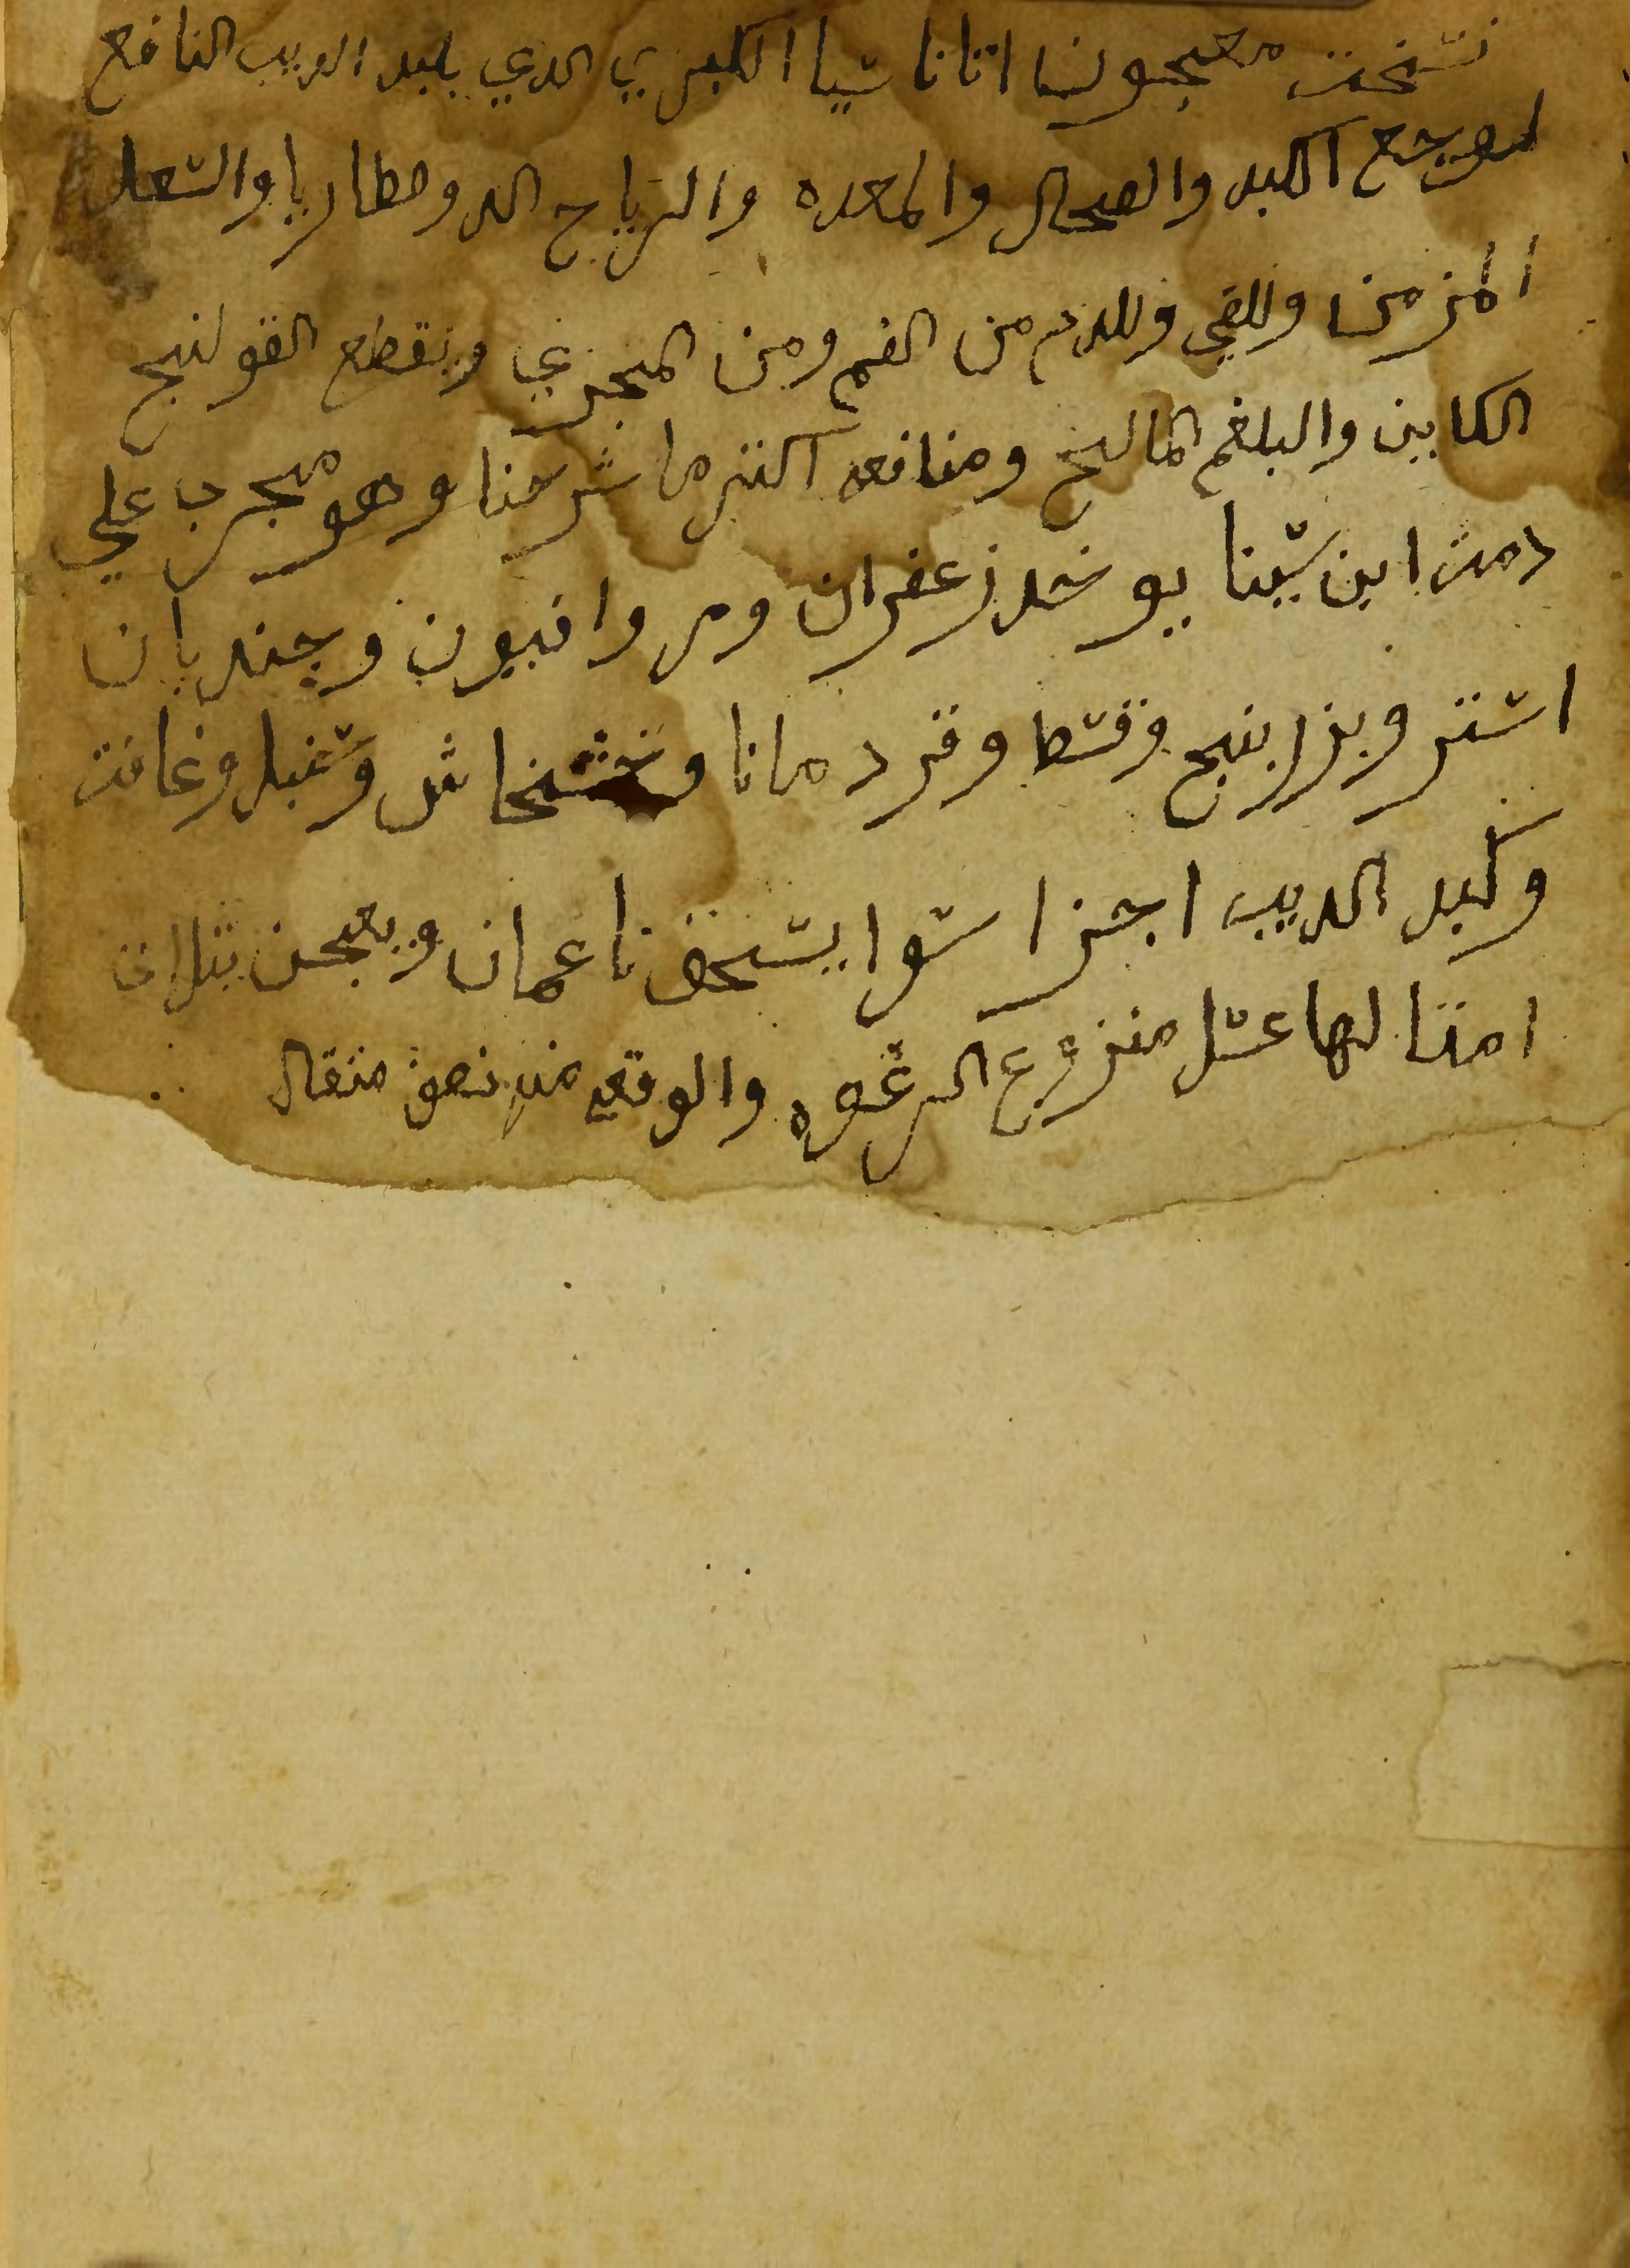 نسخت معجون اتاناسيا الكبري الدي بكبد الديب النافع
لوجع الكبد والطحال والمعده والرياح الدوصطاريا والسعال
المزمن وللقي وللدم من الفم ومن المجري ويقطع القولنج
الكاين والبلغم المالح ومنافعه اكتر ما شرحنا وهو مجرب علي
دمت ابن سينا يوخد زعفران ومر وافيون وجندبان
استر وبزر بنج وقسط وقردمانا وخشخاش وسنبل وغافت
وكبد الديب اجزا سوا يسحق ناعمان ويعجن بتلات
امتالها عسل منزوع الرغوه والوقيه منه نصف متقال